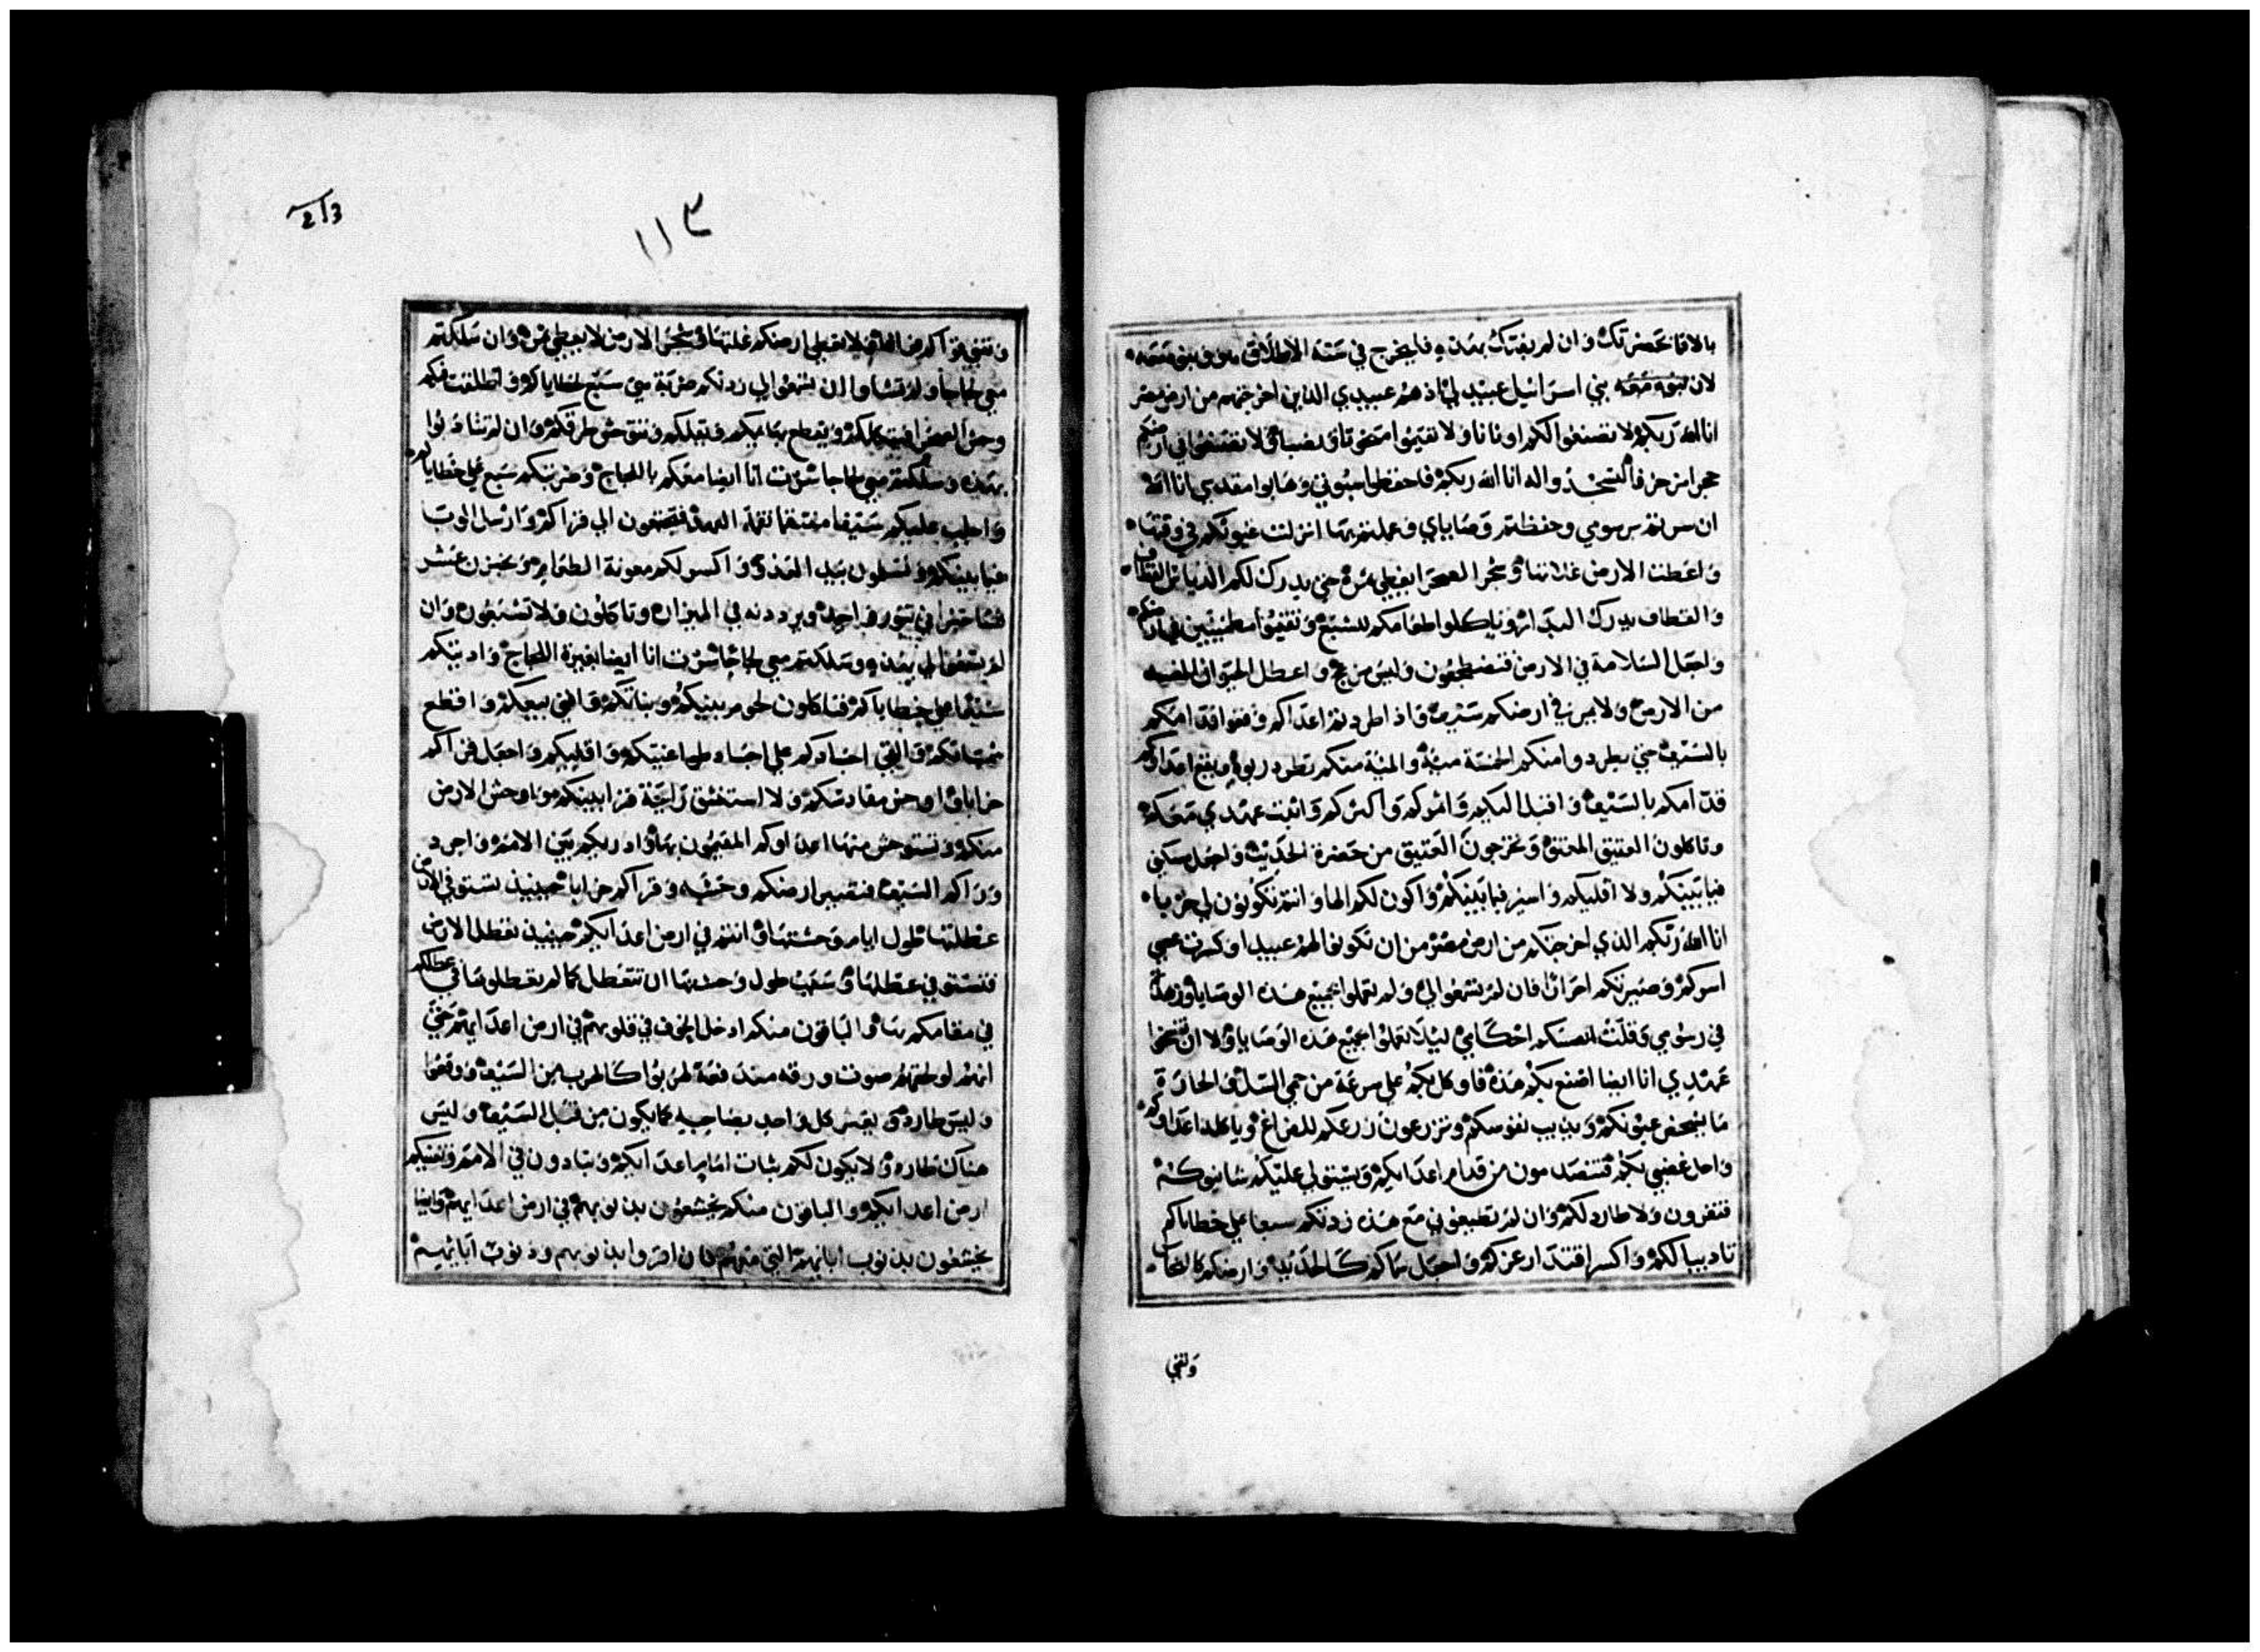 بالاقا بحضرتك وان لم يفتك بهذه فليخرج في سنة الاطلاق هو وبنوه معه
لان بنوه معه بني اسرائيل عبيد لي اذ هم عبيدي الذين اخرجتهم من ارض مصر
انا الله ربكم لا تصنعوا لكم اوثانا ولا تقيموا منحوتا ونصبا ولا تضعوا في ارضكم
حجرا مزخرفا لتسجدوا له انا الله ربكم فاحفظوا سبوتي وهابوا مقدسي انا الله
ان سرتم برسومي وحفظتم وصاياي وعملتم بها انزلت غيوثكم في وقتها
واعطت الارض غلاتها وشجر الصحرا يعطي ثمره حتى يدرك لكم الدياس القطاف
والقطاف يدرك البدار وتاكلوا طعامكم للشبع وتقيموا مطمئنين في ارضكم
واجعل السلامة في الارض فتضطجعون وليس مزعج واعطل الحيوان المضر
من الارض ولا يمر في ارضكم سيف واذا طردتم اعداكم وقعوا قدامكم
بالسيف حتى يطردوا منكم الخمسة مية والمية منكم تطرد ربوة ويقع اعداوكم
قدامكم بالسيف واقبل اليكم وانموكم واكثركم واثبت عهدي معكم
وتاكلون العتيق المعتق وتخرجون العتيق من حضرة الحديث واجعل مسكني
فيما بينكم ولا اقليكم واسير فيما بينكم واكون لكم الها وانتم تكونون لي حزبا
انا الله ربكم الذي اخرجتكم من ارض مصر من ان تكونوا لهم عبيدا وكسرت عصي
اسركم وصيرتكم احرارا فان لم تسمعوا لي ولم تعملوا بجميع هذه الوصايا وزهدتم
في رسومي وقلت انفسكم احكامي ليلا تعملوا بجميع هذه الوصايا ولا ان تفسخوا
عهدي انا ايضا اصنع بكم هذه فاوكل بكم على سرعة من حمى السل والحارة
ما يشخص عيونكم ويذيب نفوسكم وتزرعون زرعكم للفراغ وياكله اعداوكم
واحل غضبي بكم فتنصدمون من قدام اعدايكم ويستولي عليكم شانيوكم
فتفرون ولا طارد لكم وان لم تطيعوني مع هذه زدتكم سبعا على خطاياكم
تاديبا لكم واكسر اقتدار عزكم واجعل سماكم كالحديد وارضكم كالنحاس
وتفني
١١٣
213
وتفني قواكم في الفراغ ولا تعطي ارضكم غلتها وشجر الارض لا يعطي ثمره وان سلكتم
معي لجاجا ولم تشاوا ان تسمعوا لي زدتكم ضربة مني سبع لخطاياكم واطلقت فيكم
وحش الصحرا فيثكلكم ويقطع بهايمكم ويقللكم وتتوحش طرقكم وان لم تتادبوا
بهذه وسلكتم معي لجاجا سرت انا ايضا معكم باللجاج وضربتكم سبع على خطاياكم
واجلب عليكم سيفا منتقما نقمة العهد فتجتمعون الى قراكم وارسل الوبا
فيما بينكم وتسلمون بيد العدو واكسر لكم معونة الطعام ويخبزن عشر
نسا خبزا في تنور واحد ويرددنه في الميزان وتاكلون ولا تشبعون وان
لم تسمعوا لي بهذه وسلكتم معي لجاجا سرت انا ايضا بغيرة اللجاج وادبتكم
سبعا على خطاياكم فتاكلون لحوم بنيكم وبناتكم وافني بيعكم واقطع
شمساتكم والقي اجسادكم على اجساد طواغيتكم واقليكم واجعل قراكم
خرابا واوحش مقادسكم ولا استنشق رايحة قرابينكم واوحش الارض
منكم وتستوحش منها اعداوكم المقيمون بها واذريكم بين الامم واجرد
وراكم السيف فتصير ارضكم وحشة وقراكم خرابا حينيذ تستوفي الارض
عطلتها طول ايام وحشتها وانتم في ارض اعدايكم حينيذ تعطل الارض
فتستوفي عطلتها وسبت طول وحشتها ان تتعطل كما لم تعطلوها في عطلكم
في مقامكم بها والباقون منكم ادخل الخوف في قلوبهم في ارض اعدايهم حتى
انهم لو لحقهم صوت ورقه مندفعة لهربوا كالهرب من السيف ووقعوا
وليس طارد ويعثر كل واحد بصاحبه كما يكون من قبل السيف وليس
هناك طارد ولا يكون لكم ثبات امام اعدايكم وتبادون في الامم وتفنيكم
ارض اعدايكم والباقون منكم يخشعون بذنوبهم في ارض اعدايهم وايضا
يخشعون بذنوب ابايهم التي معهم فان اقروا بذنوبهم وذنوب ابايهم